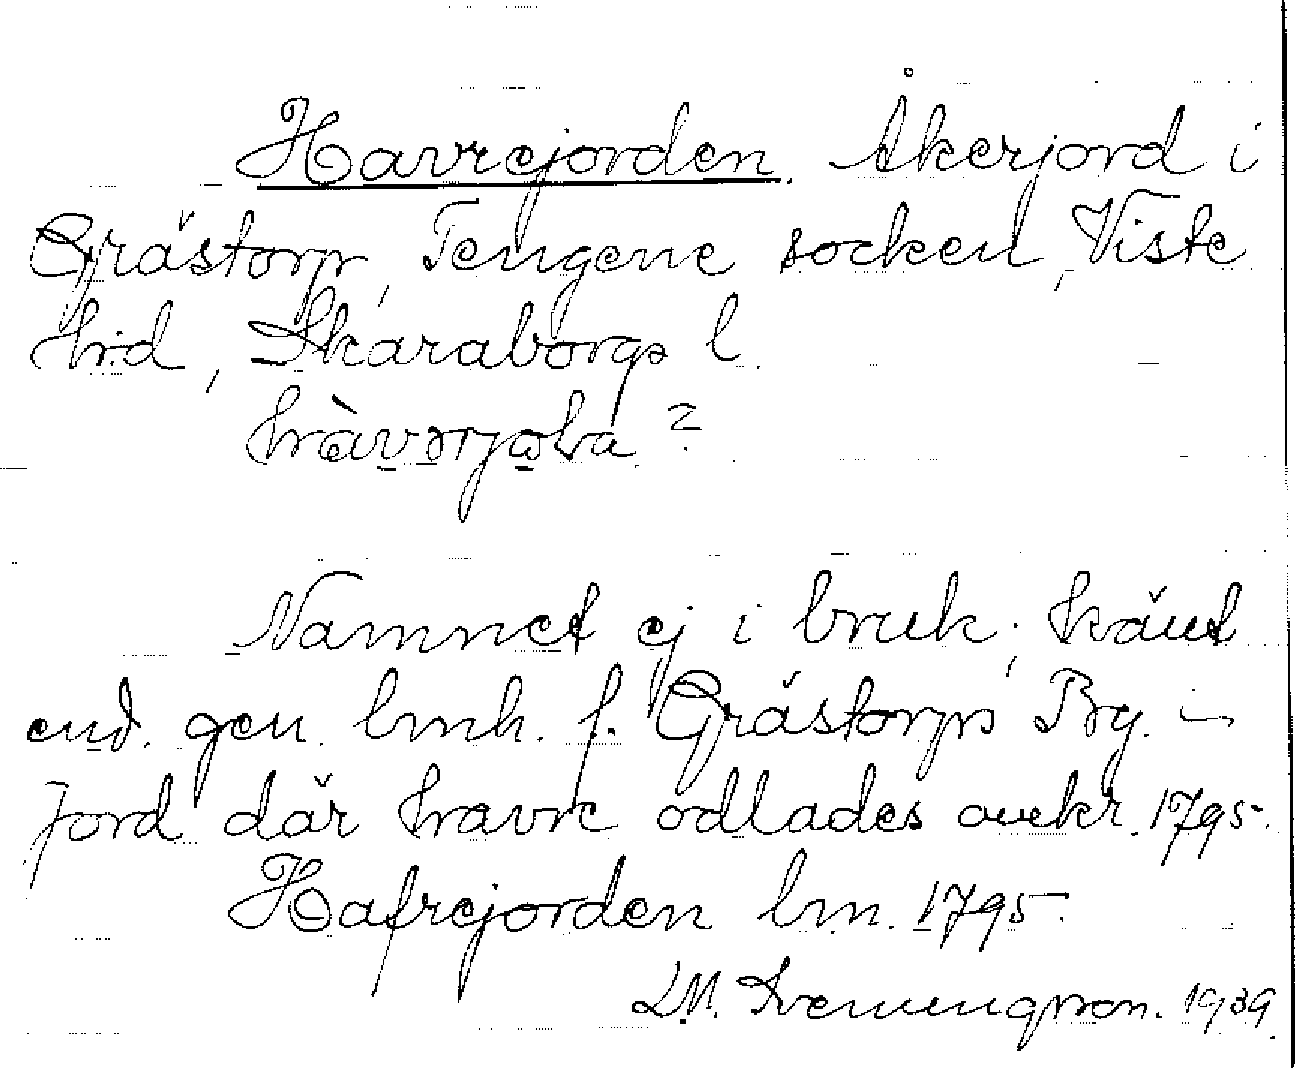 Havrejorden. Åkerjord i
Grästorp, Tengene socken, Viste
hrd, Skaraborgs l.
Namnet ej i bruk; känt
end. gen. lmh. f. Grästorps By. –
Jord där havre odlades omkr. 1795.
Hafrejorden lm. 1795.
LM. Svenungsson. 1939.